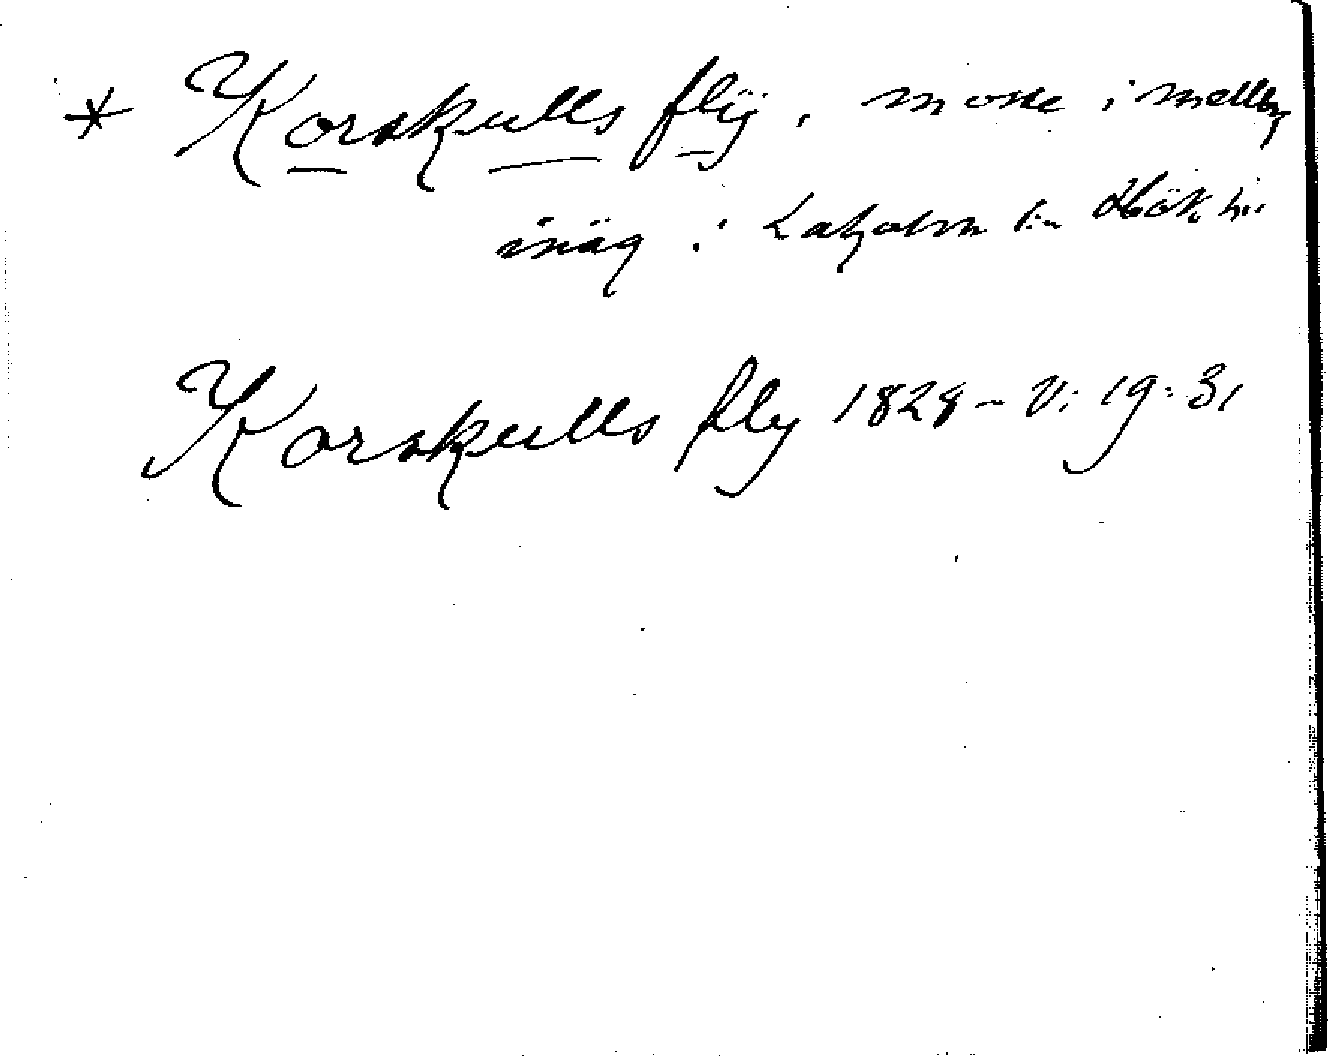 * Korskulls flÿ, mosse i mellersta
inäg. i Laholm l:n Hök h:i
Korskulls fly 1829 - V: 19: 31